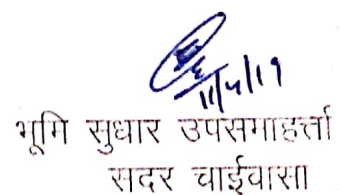 11/4/19
भूमि सुधार उपसमाहर्त्ता
सदर चाईबासा